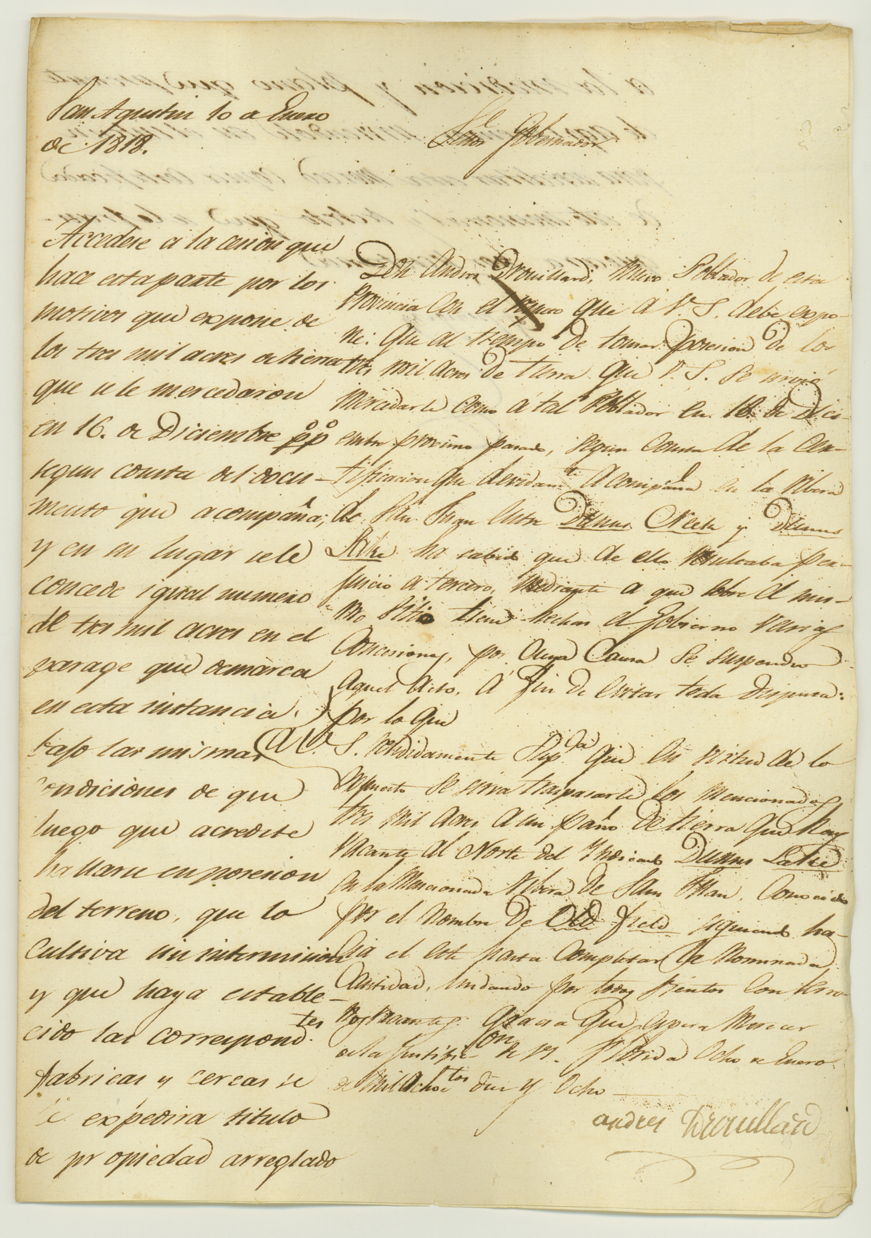 San Agustin 10 de Enero
de 1818.
Accedese a la cesion que
hace esta parte por los
motivos que expone de
los tres mil acres de tierra
que se le mercedaron
en 16. de Diciembre pp.º
segun consta del docu-
mento que acompaña;
y en su lugar se le
concede igual numero
de tres mil acres en el
parage que demarca
en esta instancia,
bajo las mismas
condiciones de que
luego que acredite
hallarse en posesion
del terreno, que lo
cultiva sin intermision
y que haya estable-
cido las correspond.tes
fabricas y cercas se
le expedira titulo
de propiedad arreglado
Señor Gobernador
Don Andres Drouillard, nuevo Poblador de esta
Provincia con el que a V. S. debe expo-
ne: que al tiempo de tomar posesion de los
tres mil acres de tierra que V. S. se sirvió
mercedarle como á tal Poblador en 16 de Dici-
embre proximo pasado, segun consta de la cer-
tificacion que devidam.te acompaña en la Rivera
de Sn. Juan entre Dunns Creek y Dunns
Lake ha sabido que de ello resultaba per-
juicio a tercero, mediante a que sobre el mis-
mo sitio tiene hechas el Gobierno varias
concesiones, por cuya causa se suspendio
aquel acto, á fin de evitar toda disputa:
por lo que
A V. S. rendidamente sup.ca que en virtud de lo
expuesto se sirva traspasarle los mencionados
tres mil acres a un paño de tierra que hay
vacante al Norte del indicado Dunns Lake
en la mencionada Rivera de Sn. Juan, conocido
por el nombre de Old Field siguiendo ha-
cia el este hasta completar la nominada
cantidad, lindando por todos vientos con terre-
nos vacantes. Gracia que espera merecer
de la justific.on de V. S. Florida ocho de Enero
de mil ochoc.tos diez y ocho
andres Drouillard